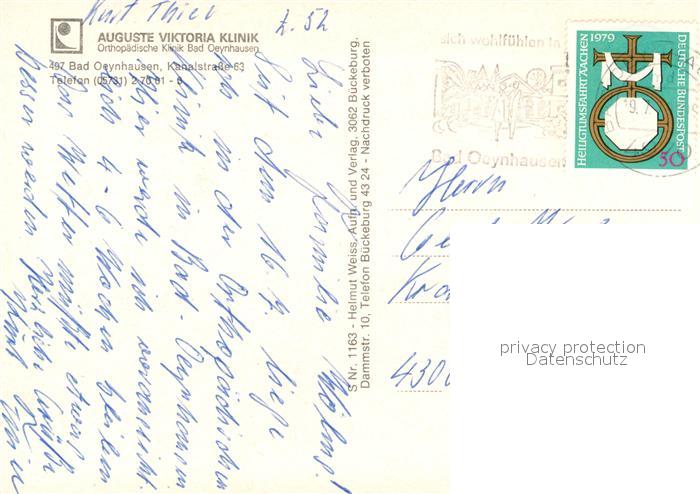 Kurt Thiel
Z. 52
AUGUSTE VIKTORIA KLINIK
Orthopädische Klinik Bad Oeynhausen
497 Bad Oeynhausen, Kanalstraße 63
Telefon (05731) 2 70 01 - 6
Liebe Familie
Seit dem 16.7. liege
ich in der Orthopädischen
Klinik in Bad-Oeynhausen
Hier werde ich voraussicht
lich 4-6 Wochen bleiben
Das Wetter müßte etwas
besser werden
Herzliche Grüße
Kurt
S Nr. 1163 - Helmut Weiss, Aufn. und Verlag, 3062 Bückeburg.
Dammstr. 10, Telefon Bückeburg 43 24 - Nachdruck verboten
sich wohlfühlen in
Bad Oeynhausen
HEILIGTUMSFAHRT AACHEN 1979
DEUTSCHE BUNDESPOST
50
Herrn
430
privacy protection
Datenschutz